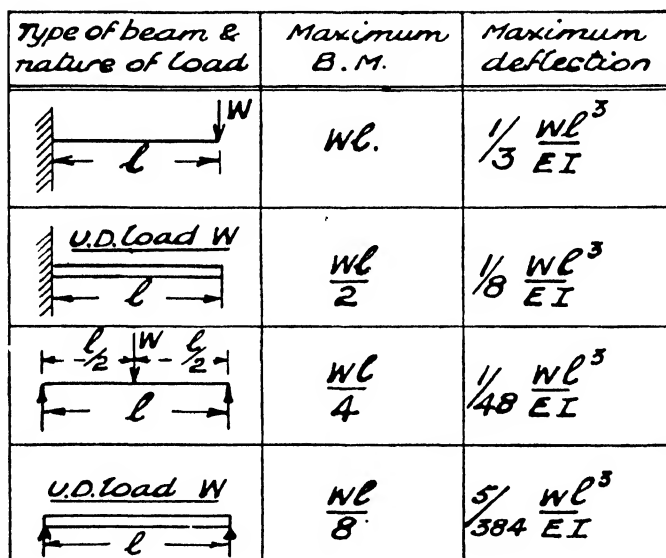 Type of beam & nature of load | Maximum B.M. | Maximum deflection
W
l | Wl. | 1/3 Wl³/EI
U.D. load W
l | Wl/2 | 1/8 Wl³/EI
l/2 W l/2
l | Wl/4 | 1/48 Wl³/EI
U.D. load W
l | Wl/8 | 5/384 Wl³/EI